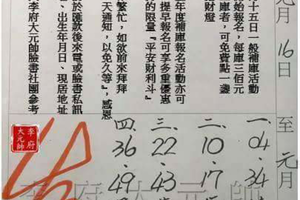 元月16日至元月
十五日一般補庫活動
始報名，每庫三佰元
庫者，可免費點一盞
財燈
年度補庫報名活動亦可
提早報名可享多重優惠
的限量『平安財利斗』
繁忙，如欲前來拜拜
天通知，以免久等』，感恩
於匯款後來電或臉書私訊
、出生年月日、現居地址
李府大元帥臉書社團參考
一.04.34
二.10.17
三.22.43
四.36.49
李府
大元帥
李府大元帥